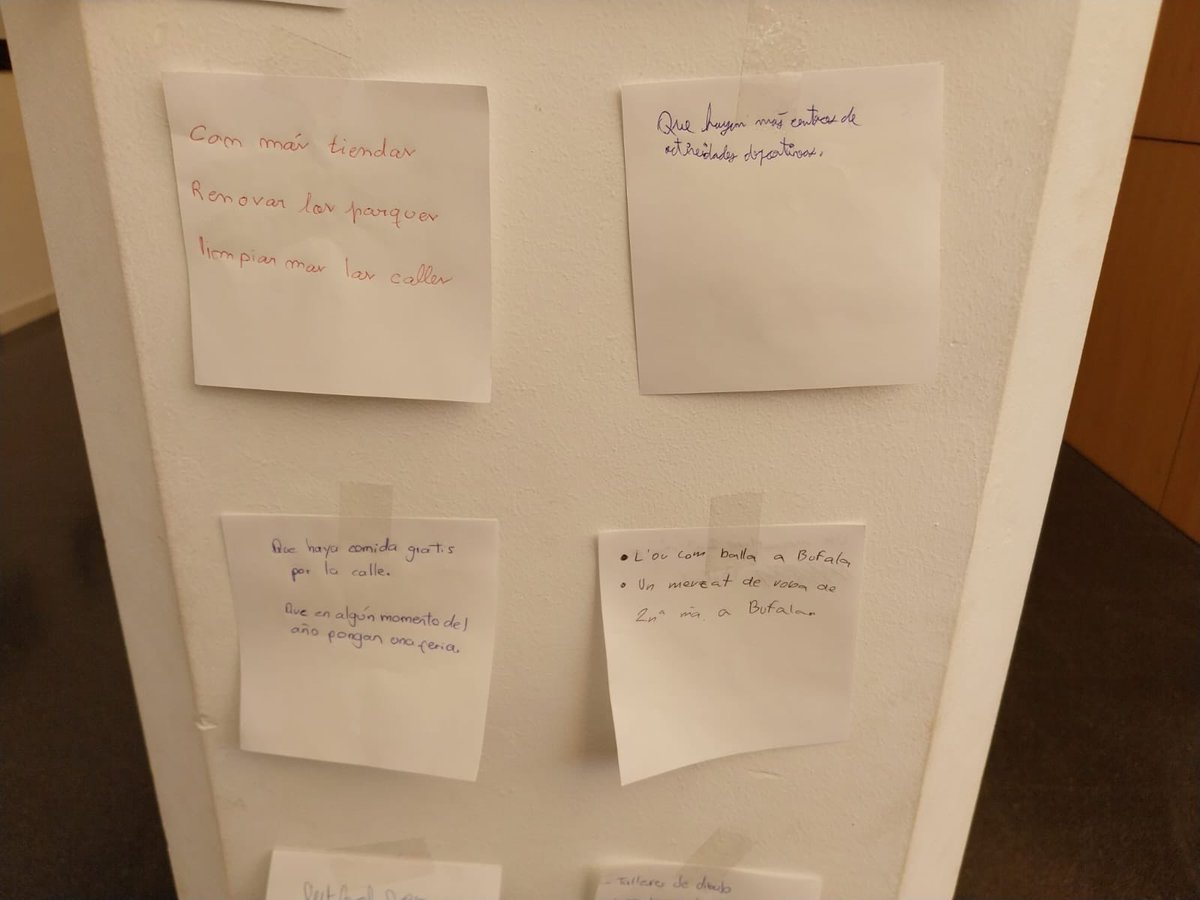 Com más tiendas
Renovar los parques
limpiar mas las calles
Que hayan más centros de
actividades deportivas.
Que haya comida gratis
por la calle.
Que en algún momento del
año pongan una feria.
• L'ou com balla a Bufala
• Un mercat de roba de
2nª mà. a Bufala.
- Talleres de dibujo